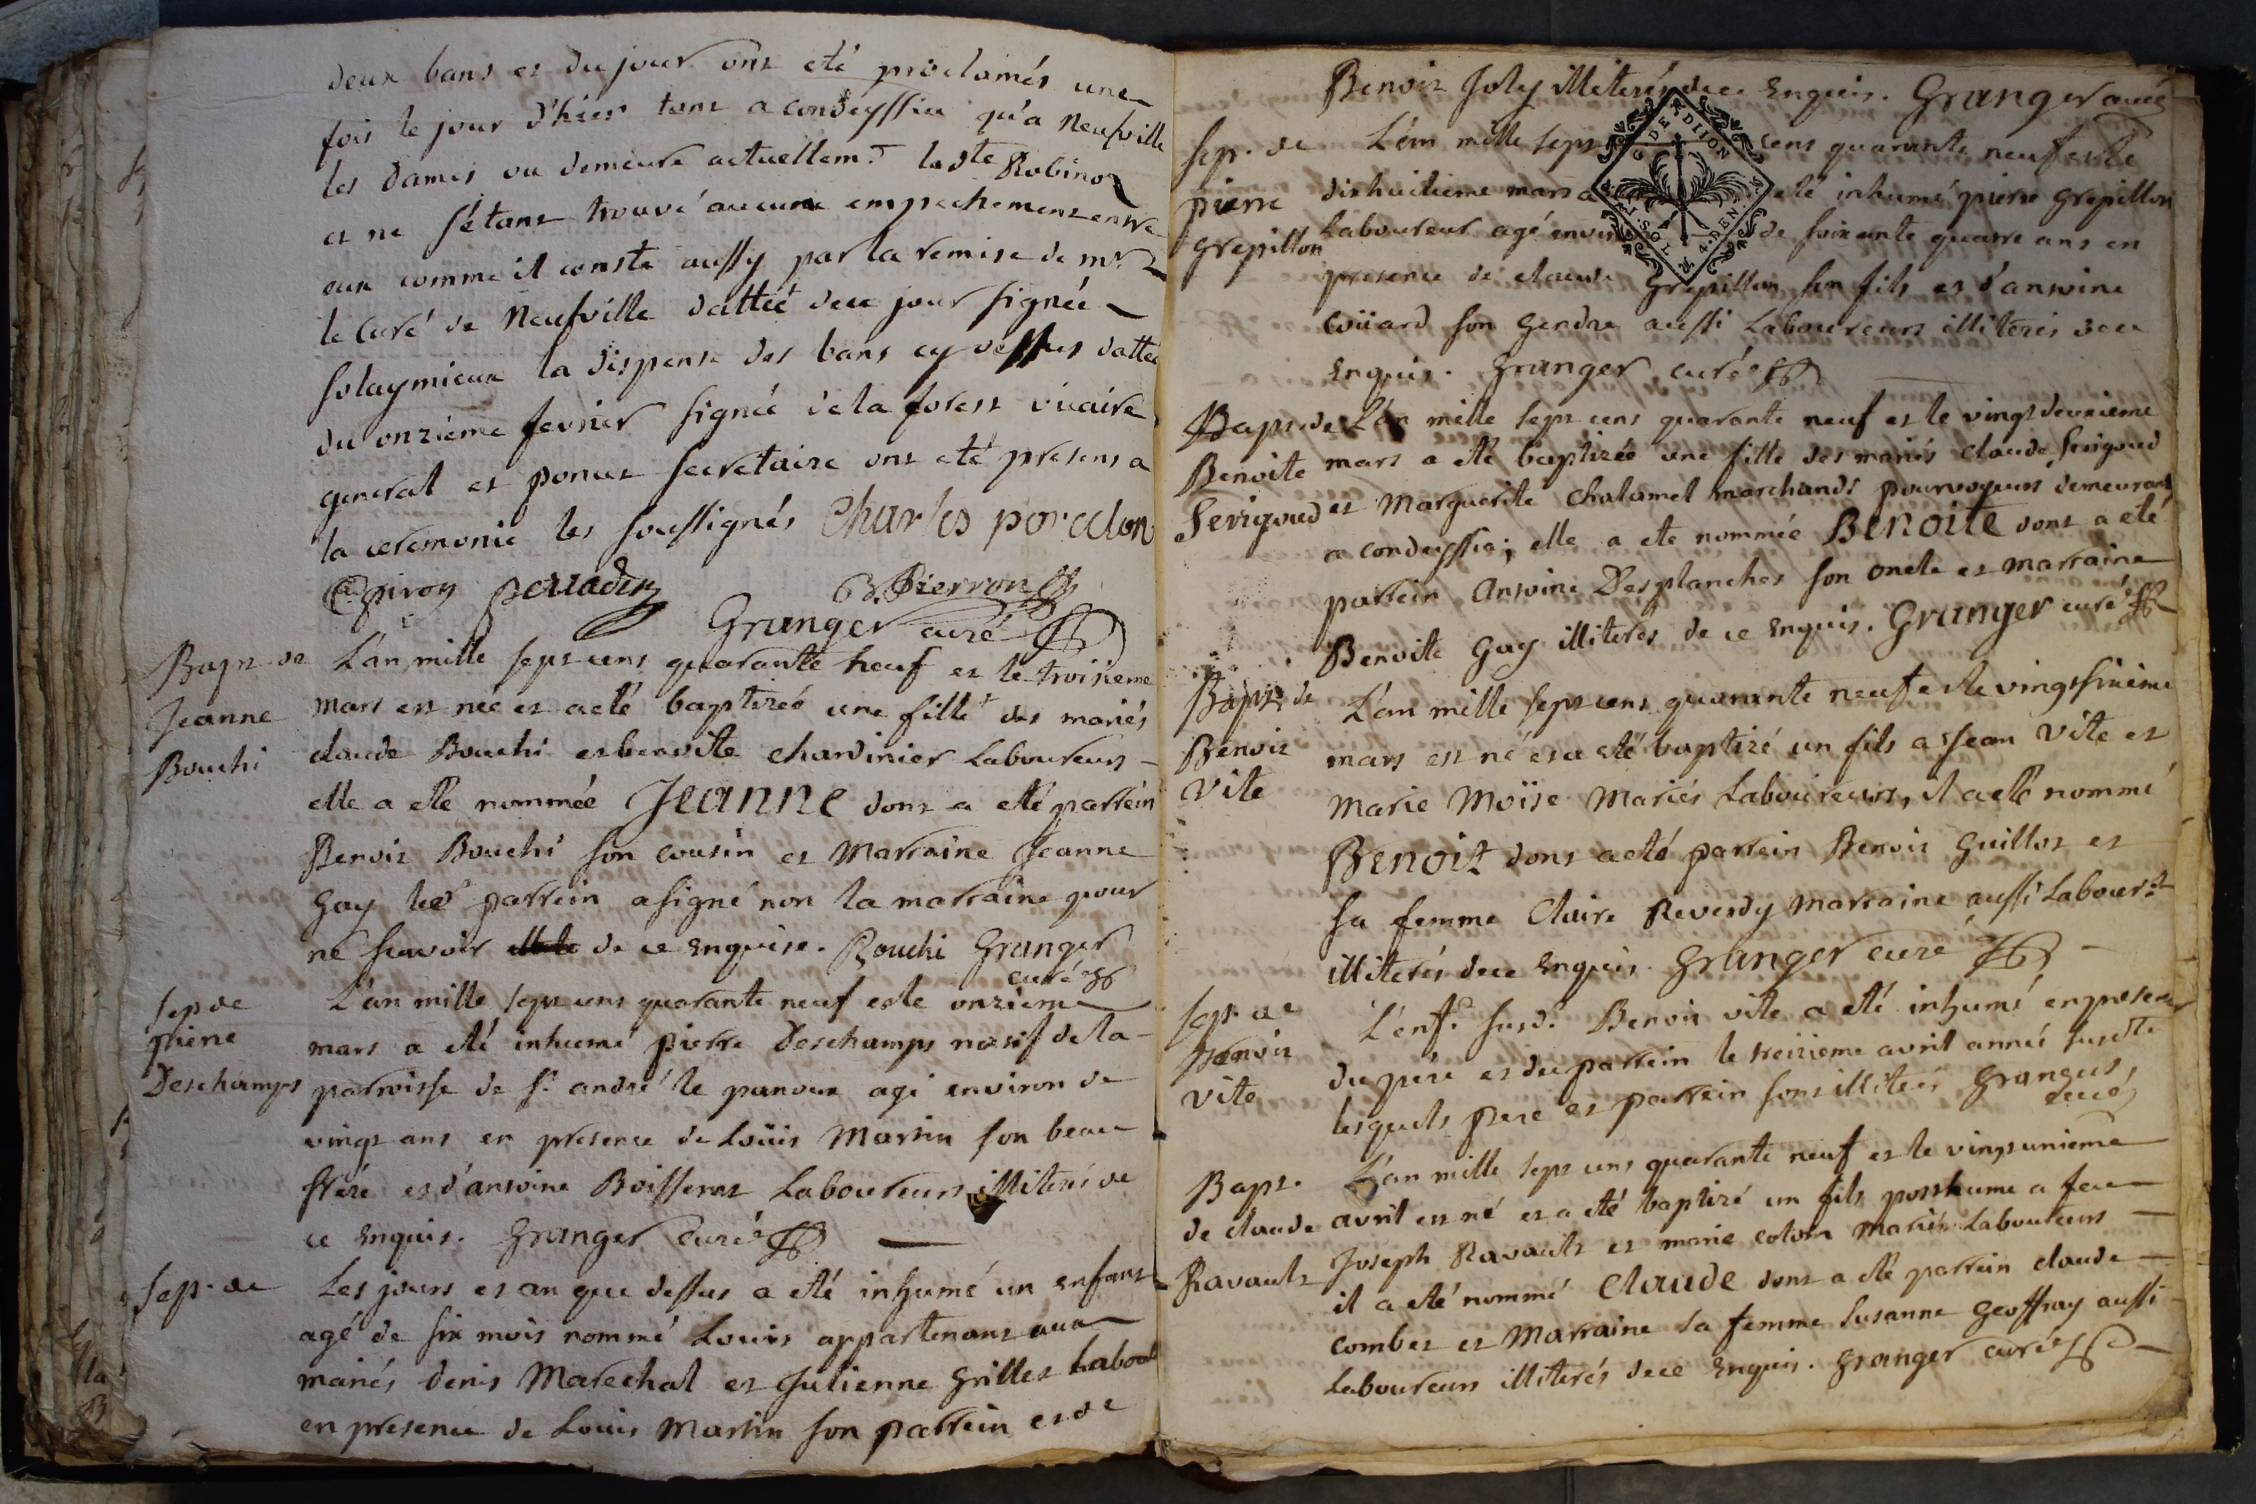 deux bans et du jour ont eté proclamés une
fois le jour d'hier tant a condeyssiu qu'a Neufville
les dames ou demeure actuellem.t lad.te Robinot
et ne s'étant trouvé aucune empechement entre
eux comme il conste aussy par la remise de mr.
le Curé de Neufville dattée de ce jour signée
Solaymieux la dispense des bans cy dessus dattée
du onzieme fevrier signée de la forest vicaire
general et poncet secretaire ont eté presens a
la ceremonie les soussignés Charles porcelon
piron perradin B. Pierron
Granger curé
Bapt. de
Jeanne
Bouchi
L'an mille sept cens quarante neuf et le troisieme
mars est née et a eté baptizée une fille des mariés
claude Bouchi et benoite chardinier Laboureurs
elle a eté nommée JEANNE dont a eté parrein
Benoit Bouchi son cousin et Marraine Jeanne
Gay le parrein a signé non la marraine pour
ne scavoir de ce enquise. Bouchi Granger
curé
sep de
pierre
Deschamps
L'an mille sept cens quarante neuf et le onzieme
mars a eté inhumé pierre Deschamps natif de la
parroisse de st. andré le panoux agé environ de
vingt ans en presence de Loüis Martin son beau
frére et d'antoine Boisseret Laboureurs illiterés de
ce enquis. Granger Curé
sep. de
Les jours et an que dessus a eté inhumé un enfant
agé de six mois nommé Louis appartenant aux
mariés denis Marechal et Julienne Grillet Labou
en presence de Louis Martin son parrein et de
Benoit Joly illiterés de ce Enquis. Granger curé
sep. de
pierre
Grepillon
L'an mille sept cens quarante neuf et le
dixhuitieme mars a eté inhumé pierre Grepillon
Laboureur agé environ de soixante quatre ans en
presence de claude Grepillon son fils et d'antoine
Coüard son Gendre aussi Laboureurs illiterés de ce
Enquis. Granger curé
G. DE DIJON
1. SOL 4. DEN.
Bapt. de
Benoite
Serigoud
L'an mille sept cens quarante neuf et le vingt deuxieme
mars a eté baptizée une fille des mariés claude Serigoud
et Marguerite Chalamel marchands pourvoyeurs demeurant
a condeyssia; elle a ete nommée BENOITE dont a eté
parrein Antoine Desplanches son oncle et marraine
Benoite Gay illiterés de ce Enquis. Granger curé
Bapt. de
Benoit
Vite
L'an mille sept cens quarante neuf et le vingt sixieme
mars est né et a eté baptizé un fils a Jean Vite et
Marie Moïse Mariés Laboureurs, il a eté nommé
BENOIT dont a eté parrein Benoit Guillot et
sa femme Claire Reverdy Marraine aussi Labour.rs
illiterés de ce Enquis. Granger curé
sep. de
Benoit
Vite
L'enf.t susd.t Benoit vite a eté inhumé en presence
du pére et du parrein le treizieme avril année susd.te
lesquels pere et parrein sont illiterés Granger
curé
Bapt.
de claude
Ravault
L'an mille sept cens quarante neuf et le vingt unieme
avril est né et a eté baptizé un fils posthume a feu
Joseph Ravault et marie colom Mariés Laboureurs
il a eté nommé CLAUDE dont a eté parrein claude
combet et Marraine sa femme Susanne Geoffray aussi
Laboureurs illiterés de ce Enquis. Granger curé